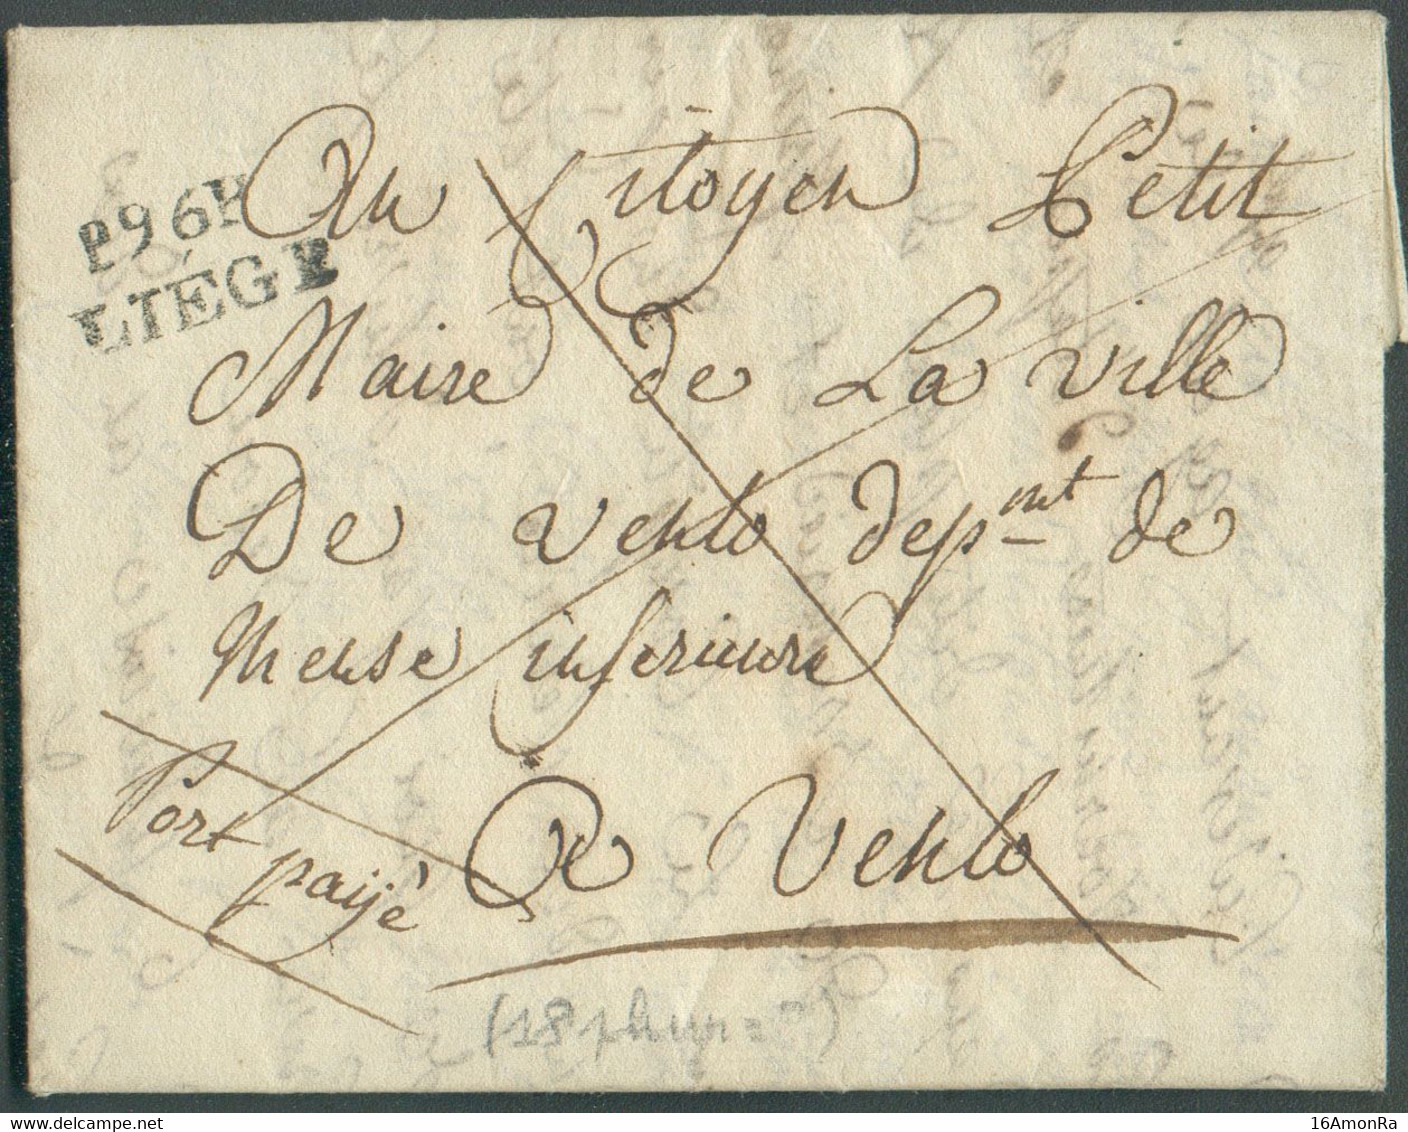 P96P
LIÉGE
Au Citoyen Petit
Maire de La ville
De venlo depmt de
Meuse inferieure
Port
payé
A Venlo
delcampe.net
16AmonRa